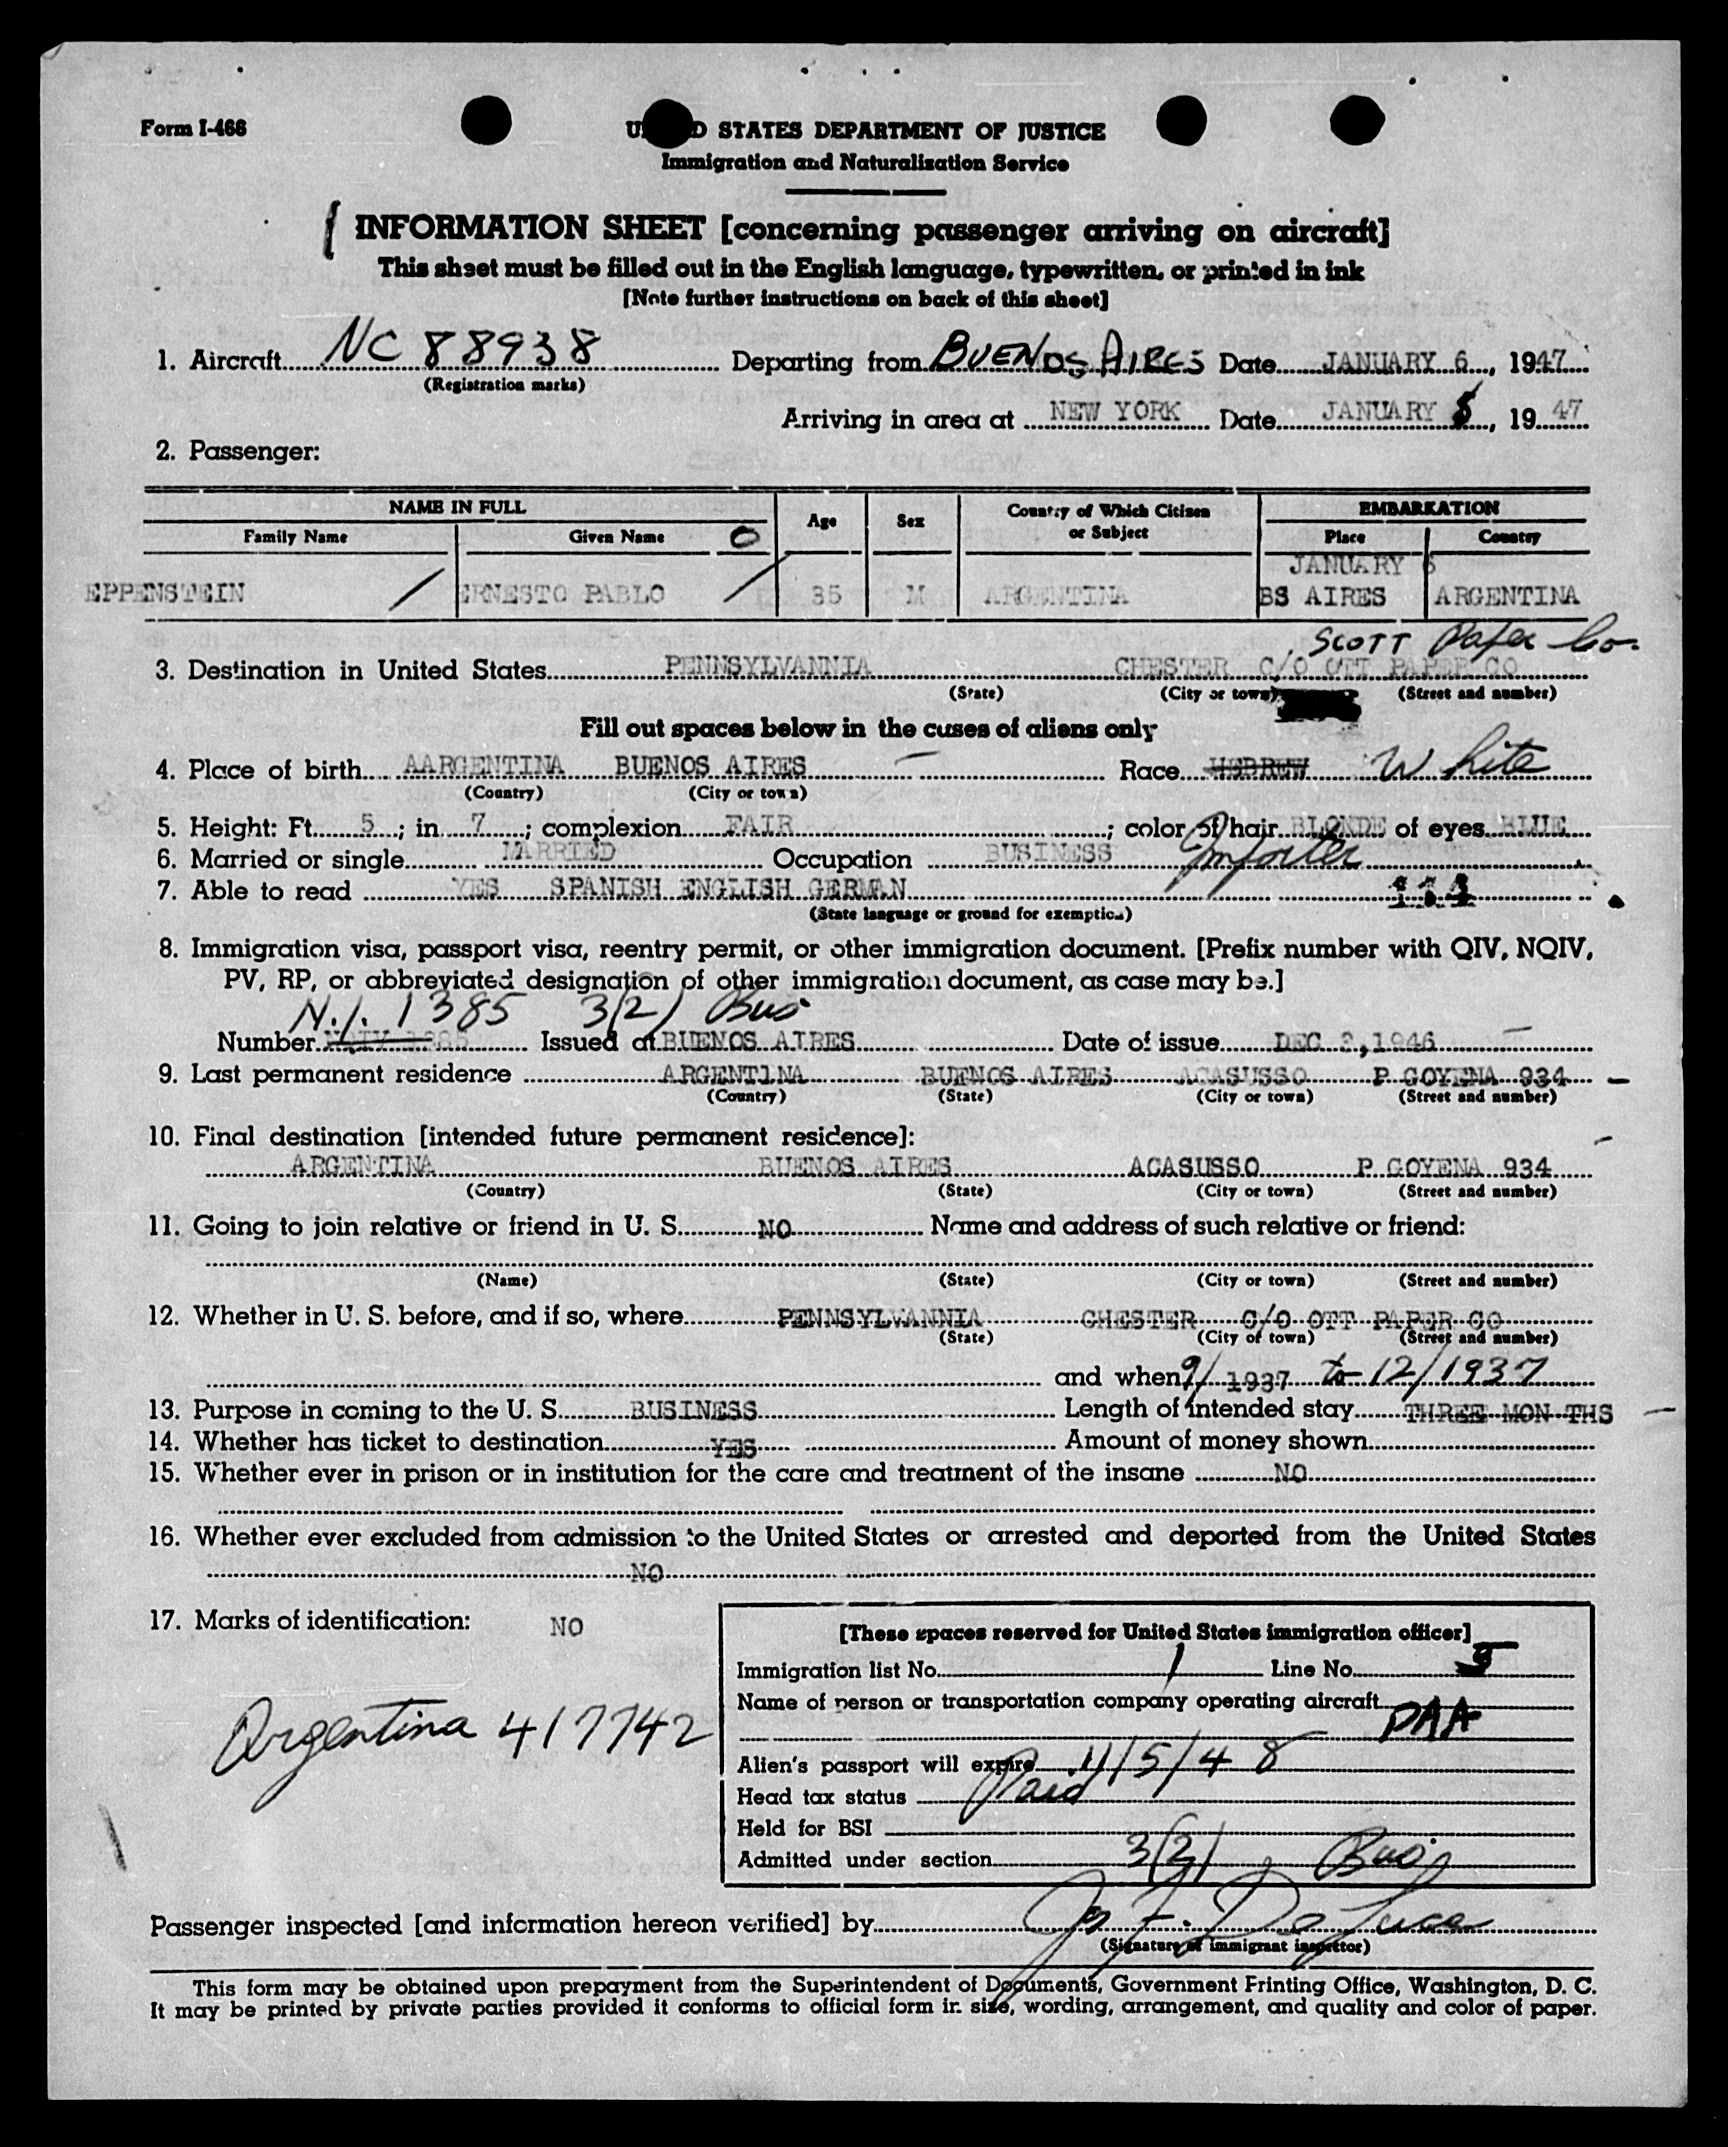 Form I-466
D STATES DEPARTMENT OF JUSTICE
Immigration and Naturalization Service
INFORMATION SHEET [concerning passenger arriving on aircraft]
This sheet must be filled out in the English language, typewritten, or printed in ink
[Note further instructions on back of this sheet]
1. Aircraft NC 88938 Departing from BUENOS AIRES Date JANUARY 6, 1947
(Registration marks)
Arriving in area at NEW YORK Date JANUARY 8, 19 47
2. Passenger:
NAME IN FULL Age Sex Country of Which Citizen or Subject EMBARKATION
Family Name Given Name O Place Country
JANUARY 6
EPPENSTEIN / ERNESTO PABLO / 35 M ARGENTINA BS AIRES ARGENTINA
SCOTT Paper Co.
3. Destination in United States PENNSYLVANNIA CHESTER C/O OTT PAPER CO
(State) (City or town) (Street and number)
Fill out spaces below in the cases of aliens only
4. Place of birth AARGENTINA BUENOS AIRES Race HEBREW White
(Country) (City or town)
5. Height: Ft. 5; in. 7; complexion FAIR; color of hair BLONDE of eyes BLUE
6. Married or single MARRIED Occupation BUSINESS Importer
7. Able to read YES SPANISH ENGLISH GERMAN
(State language or ground for exemption)
8. Immigration visa, passport visa, reentry permit, or other immigration document. [Prefix number with QIV, NQIV,
PV, RP, or abbreviated designation of other immigration document, as case may be.]
N.I. 1385 3(2) Bus
Number NQIV 1385 Issued at BUENOS AIRES Date of issue DEC 2, 1946
9. Last permanent residence ARGENTINA BUENOS AIRES ACASUSSO P GOYENA 934
(Country) (State) (City or town) (Street and number)
10. Final destination [intended future permanent residence]:
ARGENTINA BUENOS AIRES ACASUSSO P GOYENA 934
(Country) (State) (City or town) (Street and number)
11. Going to join relative or friend in U. S. NO Name and address of such relative or friend:
(Name) (State) (City or town) (Street and number)
12. Whether in U. S. before, and if so, where PENNSYLVANNIA CHESTER C/O OTT PAPER CO
(State) (City or town) (Street and number)
and when 9/ 1937 to 12/1937
13. Purpose in coming to the U. S. BUSINESS Length of intended stay THREE MON THS
14. Whether has ticket to destination YES Amount of money shown
15. Whether ever in prison or in institution for the care and treatment of the insane NO
16. Whether ever excluded from admission to the United States or arrested and deported from the United States
NO
17. Marks of identification: NO
Argentina 417742
[These spaces reserved for United States immigration officer]
Immigration list No. 1 Line No. 5
Name of person or transportation company operating aircraft PAA
Alien's passport will expire 11/5/48
Head tax status Paid
Held for BSI
Admitted under section 3(2) Bus
Passenger inspected [and information hereon verified] by
(Signature of immigrant inspector)
This form may be obtained upon prepayment from the Superintendent of Documents, Government Printing Office, Washington, D. C.
It may be printed by private parties provided it conforms to official form in size, wording, arrangement, and quality and color of paper.